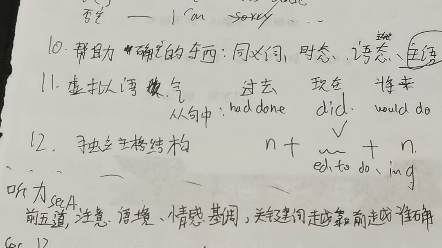 I am sorry
10. 帮助确定的东西:同义词、时态、语态、主语
11. 虚拟语气 过去 现在 将来
从句中: had done did. would do
12. 独立主格结构 n + + n.
ed, to do, ing
听力
sec A.
前五道,注意语境、情感基调,关键词越靠前越准确